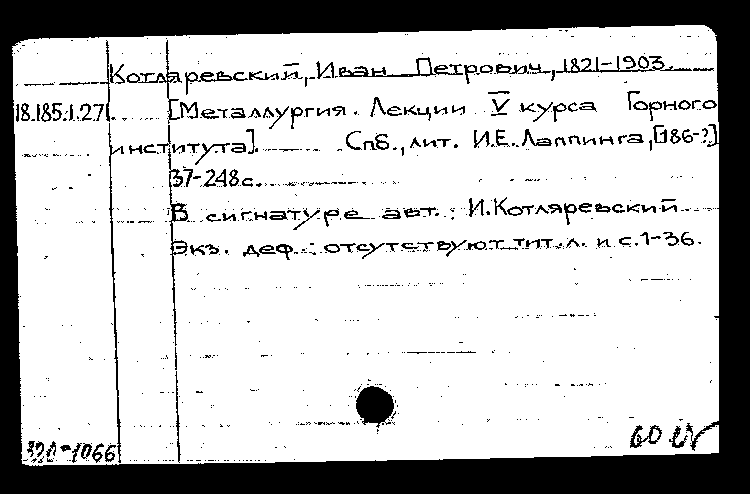 Котляревский, Иван Петрович, 1821-1903.
18.185.1.27. [Металлургия. Лекции V курса Горного
института]. Спб., лит. И.Е. Лаппинга, [186-?]
37-248 с.
В сигнатуре авт.: И.Котляревский
Экз. деф.: отсутствуют тит. л. и с. 1-36.
60
32д-1066